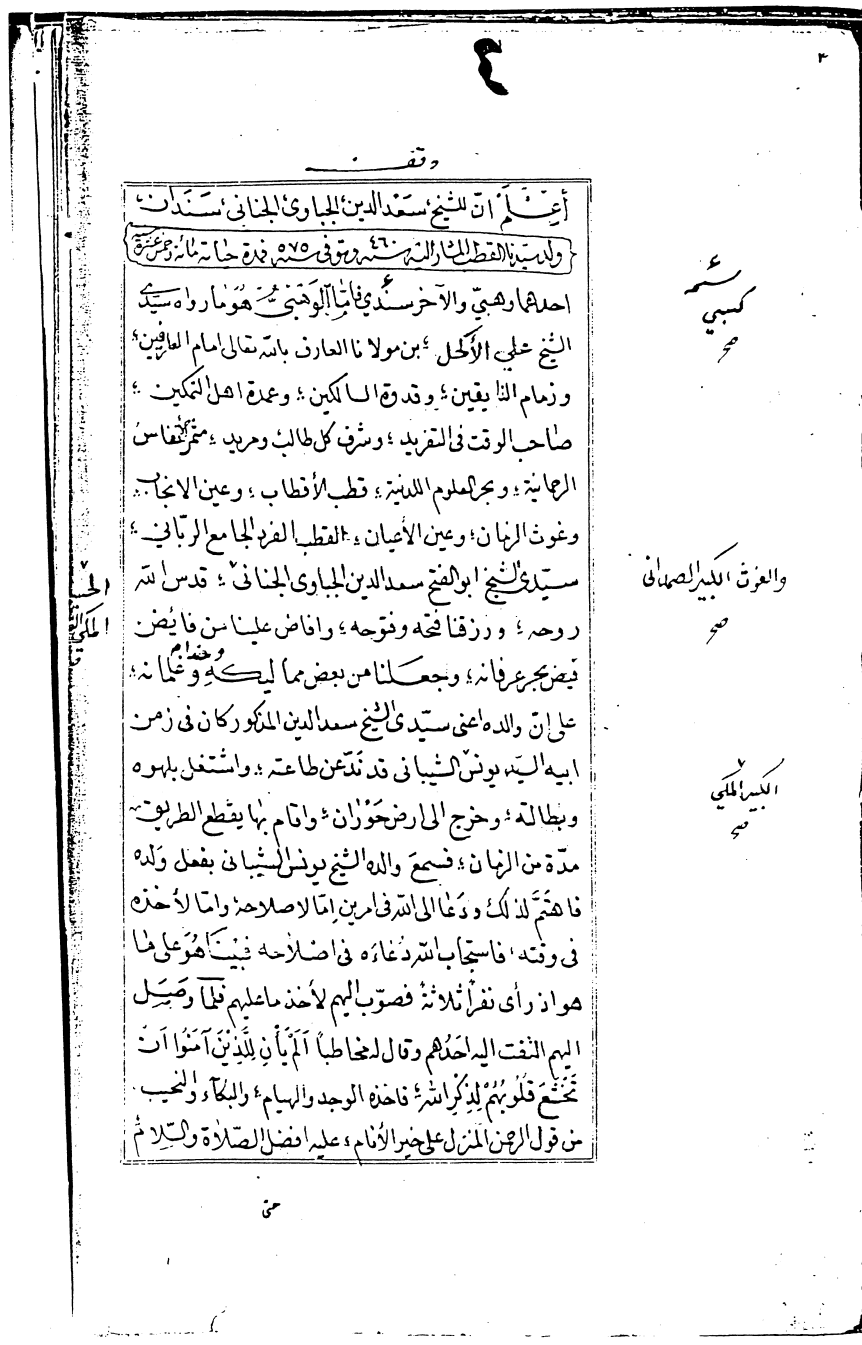 ٤
٣
وقف
أعلم انّ للشيخ سعد الدين الجباوى الجنانى سندان
ولد سيدنا القطب المشار اليه سنة ٤٦٠ وتوفى سنة ٥٧٥ فمدة حياته مائة وخمس عشرة سنة
احدهما وهبيّ والآخر سندي فامّا الوهبيّ هو ما رواه سيدى
الشيخ علي الأكحل بن مولانا العارف بالله تعالى امام العارفين
وزمام الذايقين وقدوة السالكين وعمدة اهل التمكين
صاحب الوقت فى التفريد وشرف كل طالب ومريد الأنفاس
الرحمانية وبحر العلوم اللدنية قطب الأقطاب وعين الانجاب
وغوث الزمان وعين الأعيان القطب الفرد الجامع الربّاني
سيّدى الشيخ ابو الفتح سعد الدين الجباوى الجنانى قدس الله
روحه ورزقنا فتحه وفتوحه وافاض علينا من فايض
فيض بحر عرفانه وجعلنا من بعض مماليكه وخدام وغلمانه
على انّ والده اعنى سيّدى الشيخ سعد الدين المذكور كان فى زمن
ابيه السيد يونس الشيبانى قد ندّ عن طاعته واشتغل بلهوه
وبطالته وخرج الى ارض حَوْران واقام بها يقطع الطريق
مدّة من الزمان فسمع والده الشيخ يونس الشيبانى بفعل ولده
فاهتمّ لذلك ودعا الى الله فى امرين امّا لاصلاحه وامّا لأخذه
فى وقته فاستجاب الله دُعاءَه فى اصلاحه فبينا هو على ما
هو اذ رأى نفرًا ثلاثة فصوّب اليهم لأخذ ما عليهم فلمّا وصل
اليهم التفت اليه احدُهم وقال له مخاطباً اَلَمْ يَأنِ لِلَّذِيْنَ آمَنُوا اَنْ
تَخْشَعَ قُلُوبُهُمْ لِذِكْرِ الله فاخذه الوجد والهيام والبكآء والنحيب
من قول الرحمن المنزل على خير الأنام عليه افضل الصّلاة والسّلام
حتى
كسبي
صح
والغوث الكبير الصمدانى
صح
الكبير المكي
صح
المكي